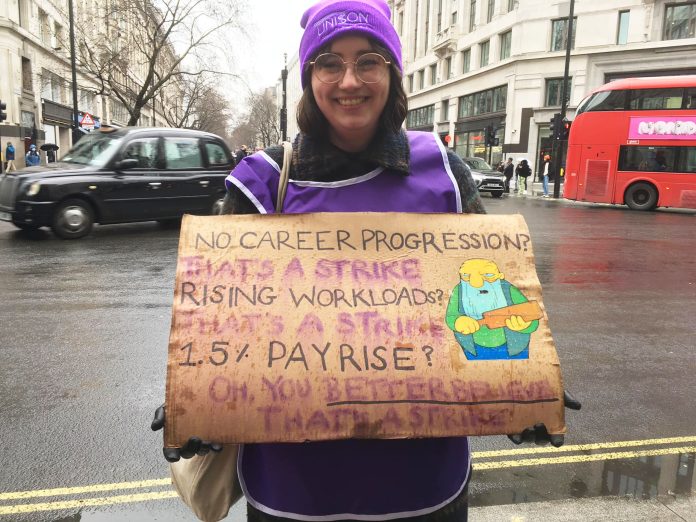 UNISON
NO CAREER PROGRESSION?
THAT'S A STRIKE
RISING WORKLOADS?
THAT'S A STRIKE
1.5% PAY RISE?
OH, YOU BETTER BELIEVE
THAT'S A STRIKE